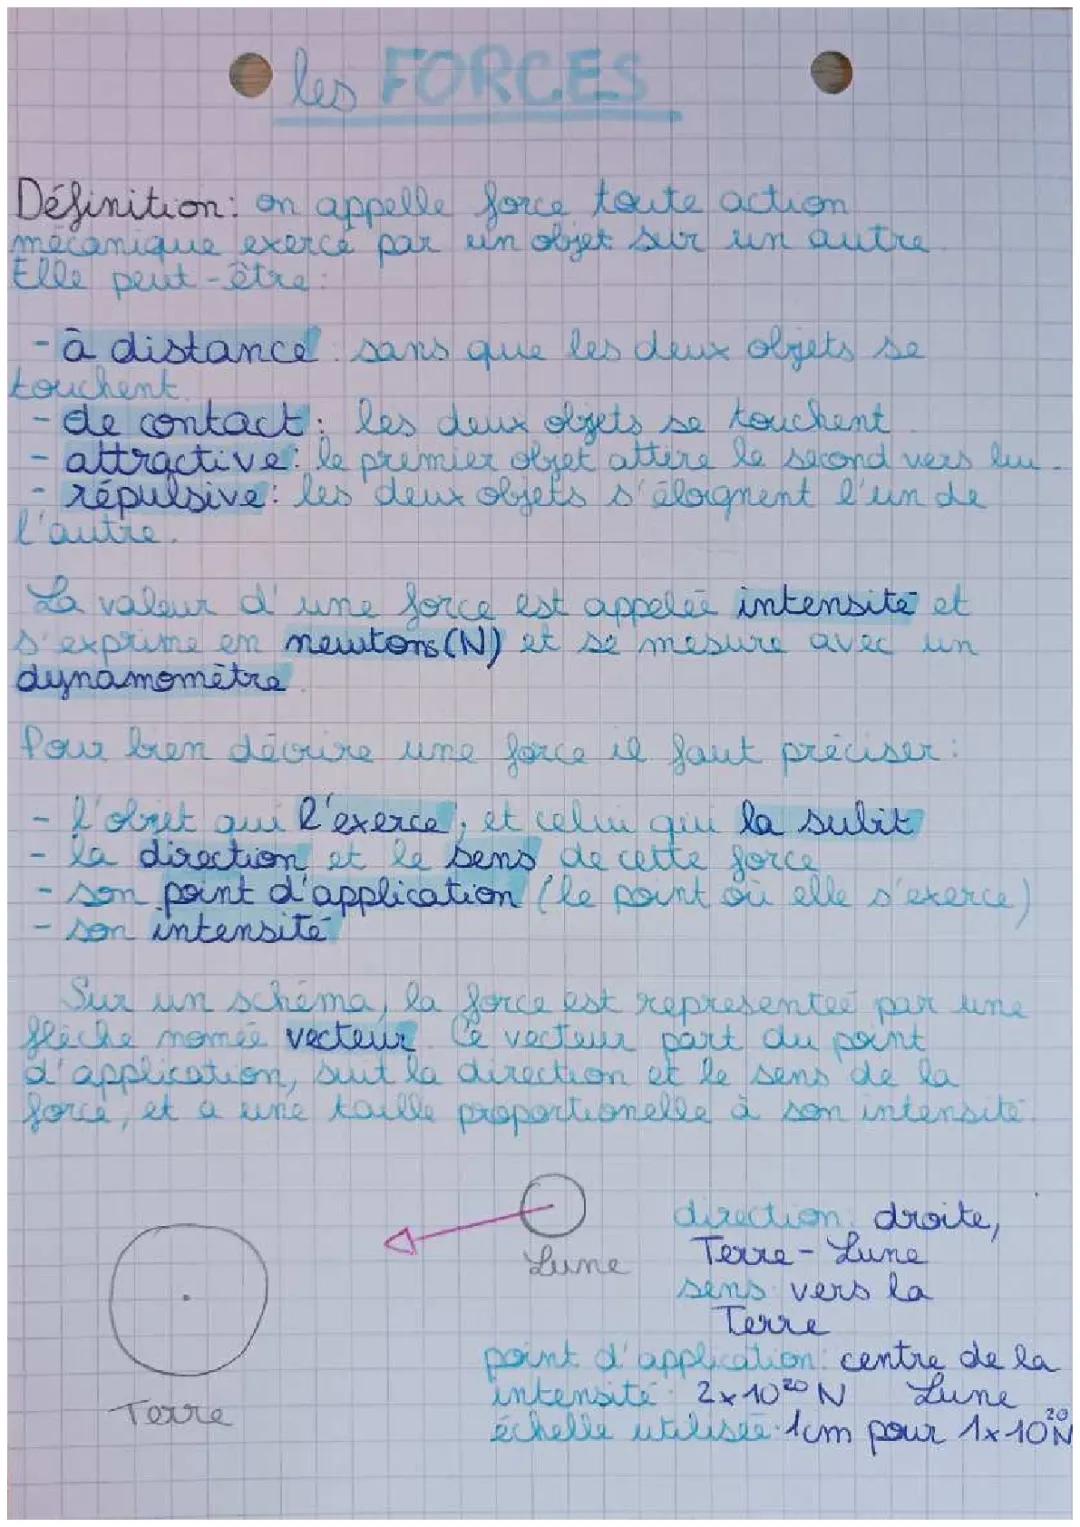 les FORCES
Définition: on appelle force toute action
mécanique exercé par un objet sur un autre.
Elle peut-être:
- à distance: sans que les deux objets se
touchent.
- de contact: les deux objets se touchent.
- attractive: le premier objet attire le second vers lui.
- répulsive: les deux objets s'éloignent l'un de
l'autre.
La valeur d'une force est appeleé intensité et
s'exprime en newtons (N) et se mesure avec un
dynamomètre.
Pour bien décrire une force il faut préciser:
- l'objet qui l'exerce, et celui qui la subit
- la direction et le sens de cette force
- son point d'application (le point où elle s'exerce)
- son intensité
Sur un schéma, la force est representeé par une
flèche nomée vecteur. Ce vecteur part du point
d'application, suit la direction et le sens de la
force, et a une taille proportionelle à son intensité.
Lune
Terre
direction: droite,
Terre-Lune
sens: vers la
Terre
point d'application: centre de la
Lune
intensité: 2x10²⁰ N
échelle utilisée: 1cm pour 1x10²⁰N